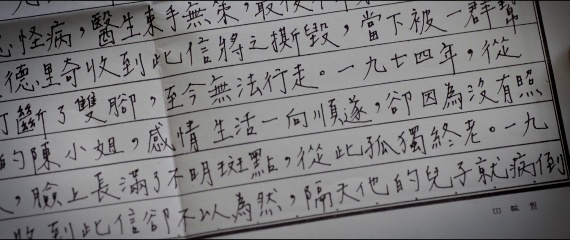 怪病，醫生束手無策，最後
德里奇收到此信將之撕毀，當下被一群
打斷了雙腳，至今無法行走。一九七四年，從
的陳小姐，感情生活一向順遂，卻因為沒有照
，臉上長滿了不明斑點，從此孤獨終老。一九
收到此信卻不以為然，隔天他的兒子就病倒